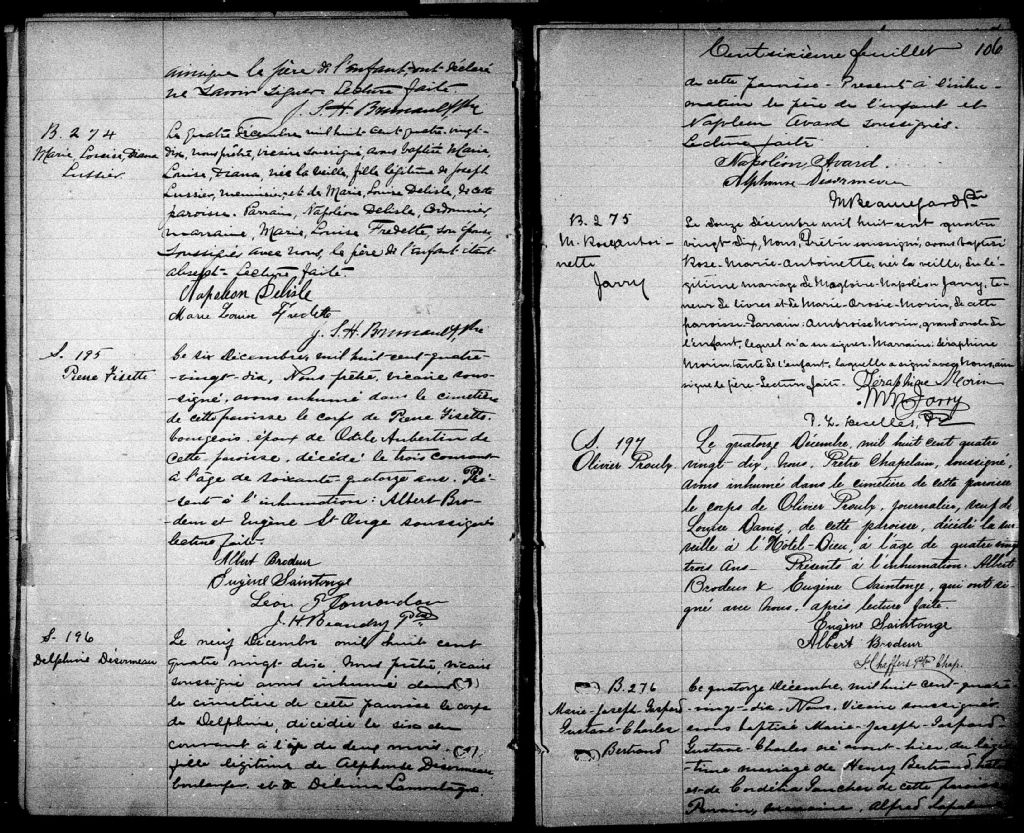 ainsi que le père de l'enfant, ont déclaré
ne savoir signer. Lecture faite.
J. S. H. Brunault, Ptre
B. 274
Marie, Louise, Diana
Lussier.
Le quatre Décembre mil huit cent quatre-vingt-
dix, nous prêtre, vicaire soussigné, avons baptisé Marie,
Louise, Diana, née la veille, fille légitime de Joseph
Lussier, menuisier, et de Marie, Louise Delisle, de cette
paroisse. Parrain, Napoléon Delisle, Cordonnier,
marraine, Marie, Louise Fredette, son épouse,
soussignés avec nous, le père de l'enfant étant
absent. Lecture faite.
Napoleon Delisle
Marie Louise Fredette
J. S. H. Brunault, Ptre
S. 195
Pierre Fisette
Le six Décembre, mil huit-cent-quatre-
-vingt-dix, Nous prêtre, vicaire sous-
-signé, avons inhumé dans le cimetière
de cette paroisse le corps de Pierre Fisette
bourgeois, époux de Odile Aubertin de
cette paroisse, décédé le trois courant
à l'âge de soixante quatorze ans. Pré-
sent à l'inhumation: Albert Bro-
deur et Eugène St Onge soussignés
lecture faite.
Albert Brodeur
Eugène Saintonge
Leon
J. H. Beaudry Ptre
S. 196
Delphine Désormeau
Le neuf Décembre mil huit cent
quatre vingt dix, Nous prêtre, vicaire
soussigné avons inhumé dans
le cimetière de cette paroisse le corps
de Delphine, décédée le six du
courant à l'âge de deux mois,
fille légitime de Alphonse Désormeau
boulanger et de Délima Lamontagne
Cent sixième feuillet 106
de cette paroisse - Présent à l'inhu-
mation le père de l'enfant et
Napoléon Avard soussignés.
Lecture faite
Napoléon Avard.
Alphonse Désormeau
M Beauregard Ptre
B. 275
M. Rose Antoi-
nette
Jarry
Le douze décembre mil huit cent quatre
vingt dix, Nous, Prêtre soussigné, avons baptisé
Rose-Marie-Antoinette, née la veille, du lé-
gitime mariage de Magloire-Napoléon Jarry, te-
neur de livres et de Marie-Orosie-Morin, de cette
paroisse. Parrain: Ambroise Morin, grand oncle de
l'enfant, lequel n'a su signer. Marraine: Séraphine
Morin, tante de l'enfant, laquelle a signé avec Nous, ain-
si que le père. Lecture faite. Séraphine Morin
M N Jarry
S. 197
Olivier Proulx
Le quatorze Décembre, mil huit cent quatre
vingt-dix, Nous, Prêtre Chapelain, soussigné,
avons inhumé dans le cimetière de cette paroisse
le corps de Olivier Proulx, journalier, veuf de
Louise Danis, de cette paroisse, décédé la sur-
veille à l'Hôtel-Dieu, à l'âge de quatre vingt
trois ans - Présents à l'inhumation: Albert
Brodeur & Eugène Saintonge, qui ont si-
gné avec Nous, après lecture faite.
Eugène Saintonge
Albert Brodeur
Ptre Chap.
B. 276
Marie-Joseph-Gaspard
Gustave-Charles
Bertrand
Le quatorze Décembre, mil huit cent quatre-
-vingt-dix. Nous, Vicaire soussigné
avons baptisé Marie-Joseph-Gaspard
Gustave-Charles né avant-hier, du légi-
-time mariage de Henry Bertrand,
et de Cordélia Faucher de cette paroisse
Parrain, marraine, Alfred